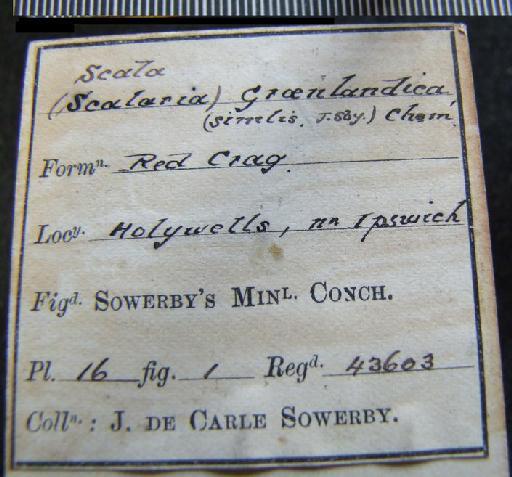 Scala
(Scalaria) Grœnlandica,
(similis, J. Sby.) Chem.
Formn. Red Crag.
Locy. Holywells, nr Ipswich
Figd. SOWERBY'S MINL. CONCH.
Pl. 16 fig. 1 Regd. 43603
Colln.: J. DE CARLE SOWERBY.